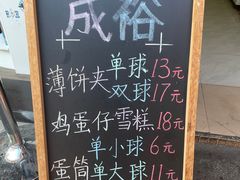 成裕
薄饼夹单球13元
双球17元
鸡蛋仔雪糕18元
单小球6元
蛋筒单大球11元